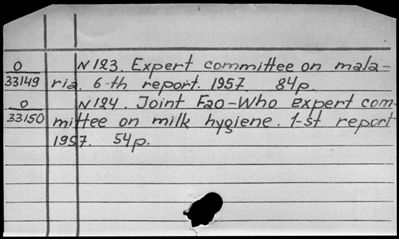 O
33149
N 123. Expert committee on mala-
ria. 6-th report. 1957. 84p.
O
33150
N 124. Joint Fao-Who expert com-
mittee on milk hygiene. 1-st report
1957. 54p.